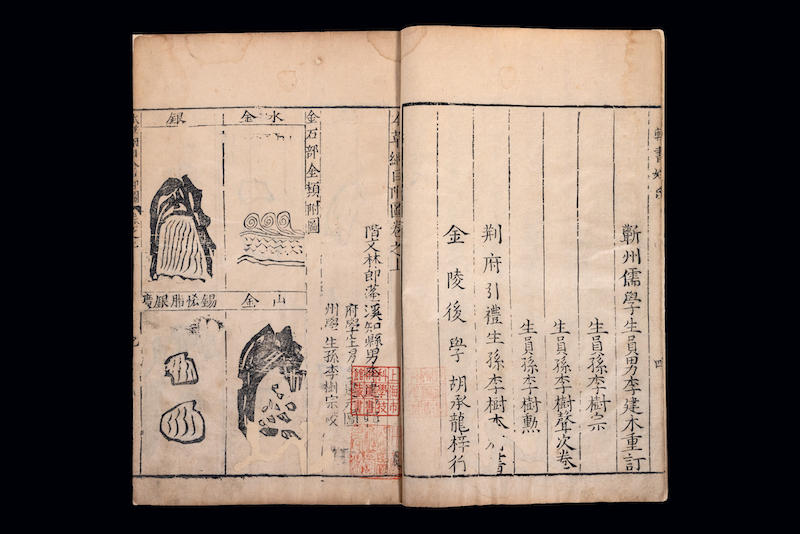 輯書姓氏
四
蘄州儒學生員男李建木重訂
生員孫李樹宗
生員孫李樹聲次卷
生員孫李樹勲
荆府引禮生孫李樹本書
金陵後學胡承龍梓行
本草綱目附圖卷之上
階文林郎蓬溪知縣男李建
府學生男李建元圖
州學生孫李樹宗校
金石部金類附圖
水金
山金
銀
錫恡脂銀礦